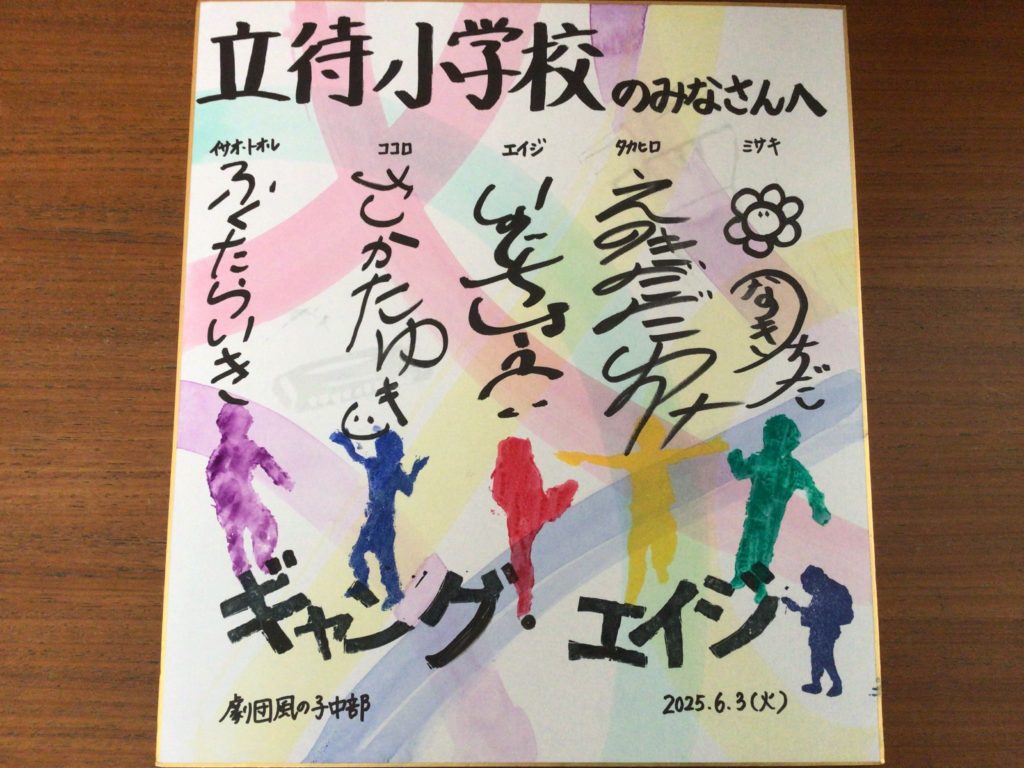 立待小学校のみなさんへ
イサオ・トオル ココロ エイジ タカヒロ ミサキ
ふくたらいき
さかたゆき
ギャング・エイジ
劇団風の子中部 2025.6.3(火)